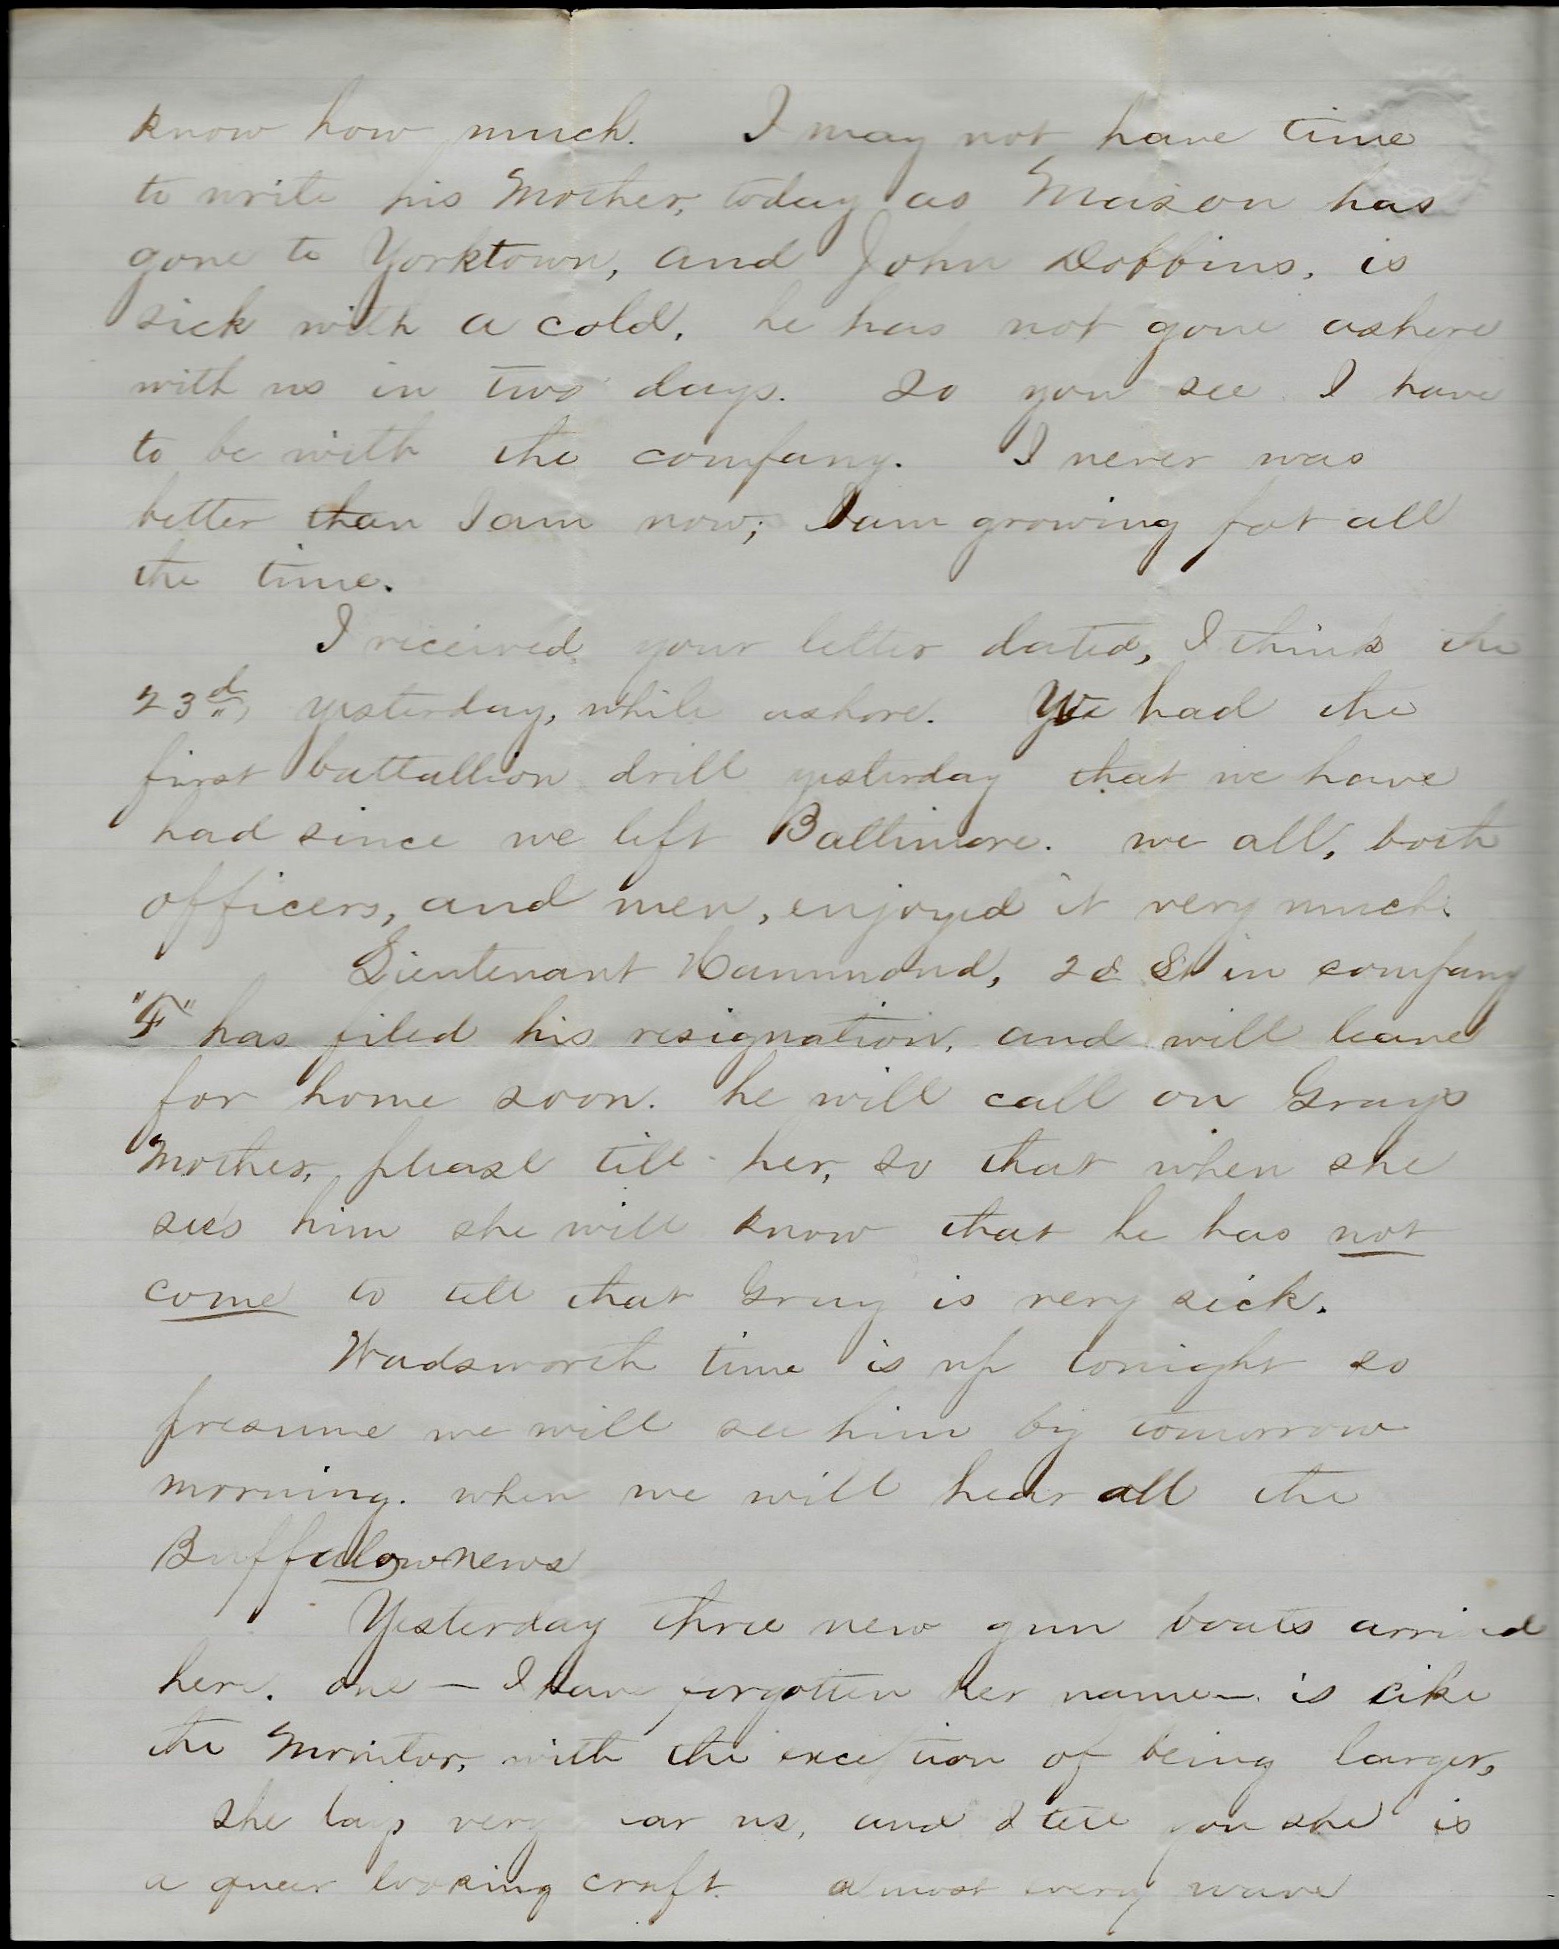 know how much. I may not have time
to write his Mother, today as Mason has
gone to Yorktown, and John Dobbins, is
sick with a cold, he has not gone ashore
with us in two days. So you see I have
to be with the company. I never was
better than I am now; I am growing fat all
the time.
I received your letter dated, I think the
23d, yesterday, while ashore. We had the
first battallion drill yesterday that we have
had since we left Baltimore. we all, both
officers, and men, enjoyed it very much.
Lieutenant Hammond, 2d Lt in company
"F" has filed his resignation, and will leave
for home soon. he will call on Grays
Mother, please till her, so that when she
sees him she will know that he has not
come to tell that Gray is very sick.
Wadsworth time is up tonight so
presume we will see him by tomorrow
morning. when we will hear all the
Buffalow news
Yesterday three new gun boats arrived
here. one — I have forgotten her name — is like
the Monitor, with the exception of being larger,
she lays very near us, and I tell you she is
a queer looking craft. almost every wave